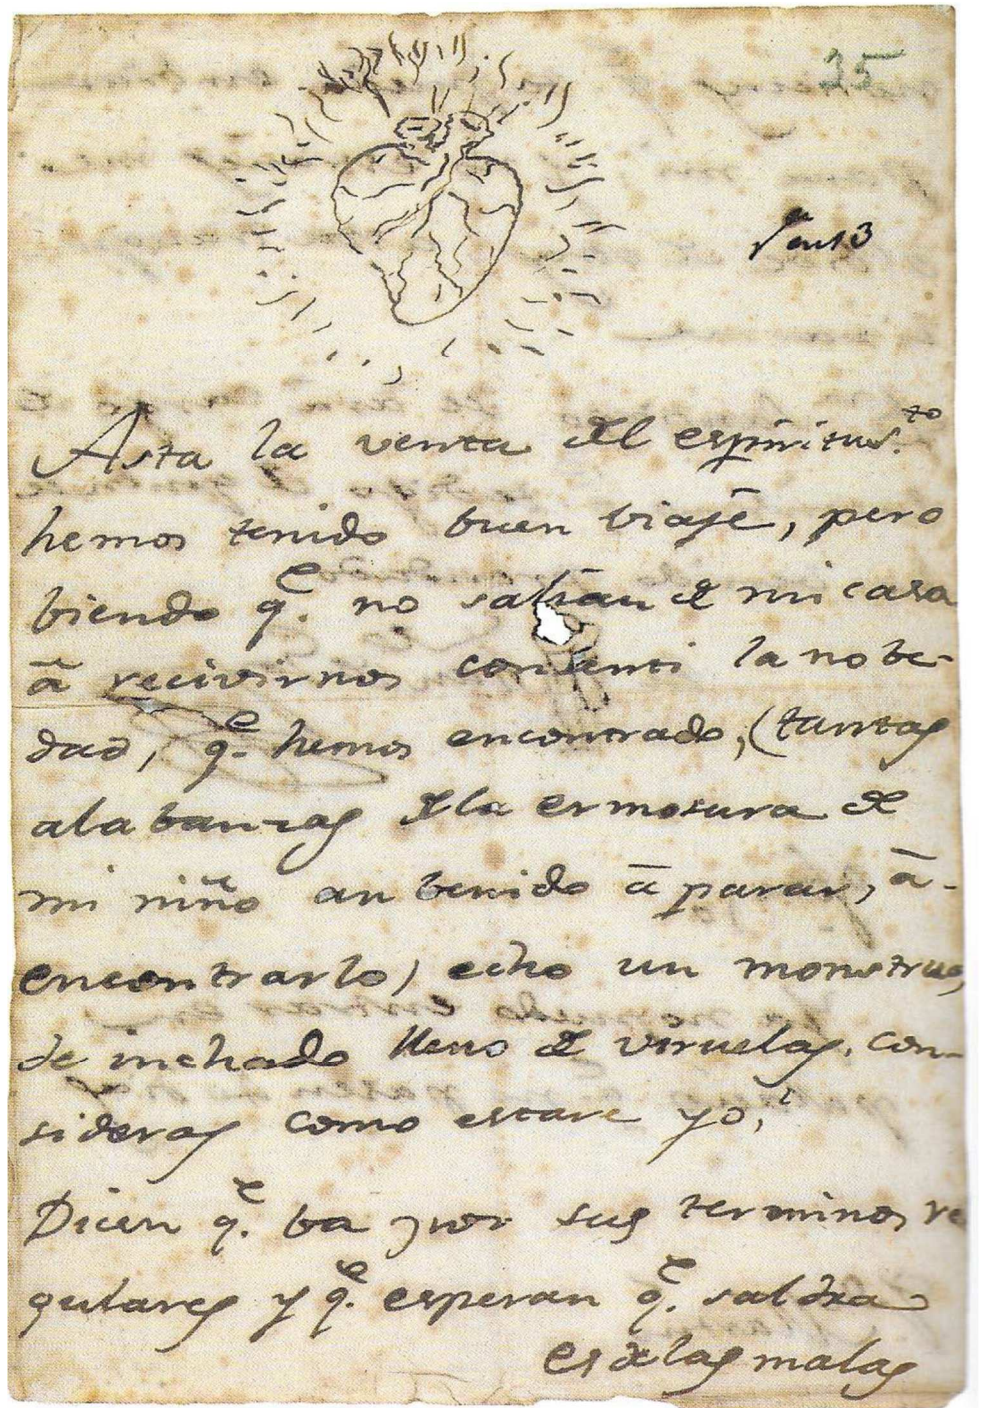 25
Asta la venta del espiritu S.to
hemos tenido buen biaje, pero
biendo q.e no salian de mi casa
â recivirnos consenti la nobe-
dad, q.e hemos encontrado, (tantas
alabanzas dela ermosura de
mi niño an benido â parar, â-
encontrarlo) echo un monstruo,
de inchado lleno de viruelas. con-
sideras como estare yo,
Dicen q.e ba por sus terminos re
gulares y q.e esperan q.e saldra
es de las malas